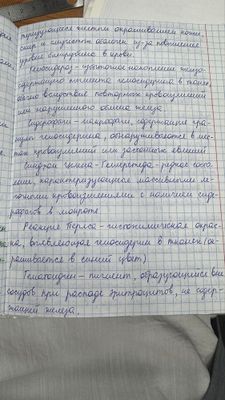 теризующееся желтым окрашиванием кожи,
склер и слизистых оболочек из-за повышения
уровня билирубина в крови.
Гемосидероз - избыточное накопление железо-
содержащего пигмента гемосидерина в тканях,
обычно вследствие повторных кровоизлияний
или нарушенного обмена железа.
Сидерофаги - макрофаги, содержащие гра-
нулы гемосидерина, обнаруживаются в мес-
тах кровоизлияний или застойных явлений.
Синдром - редкое забо-
левание, характеризующееся массивными ле-
гочными кровоизлияниями с наличием сиде-
рофагов в мокроте.
Реакция Перлса - гистохимическая окрас-
ка, выявляющая гемосидерин в тканях (ок-
рашивается в синий цвет)
Гематоидин - пигмент, образующийся вне
сосудов при распаде эритроцитов, не содер-
жащий железа.